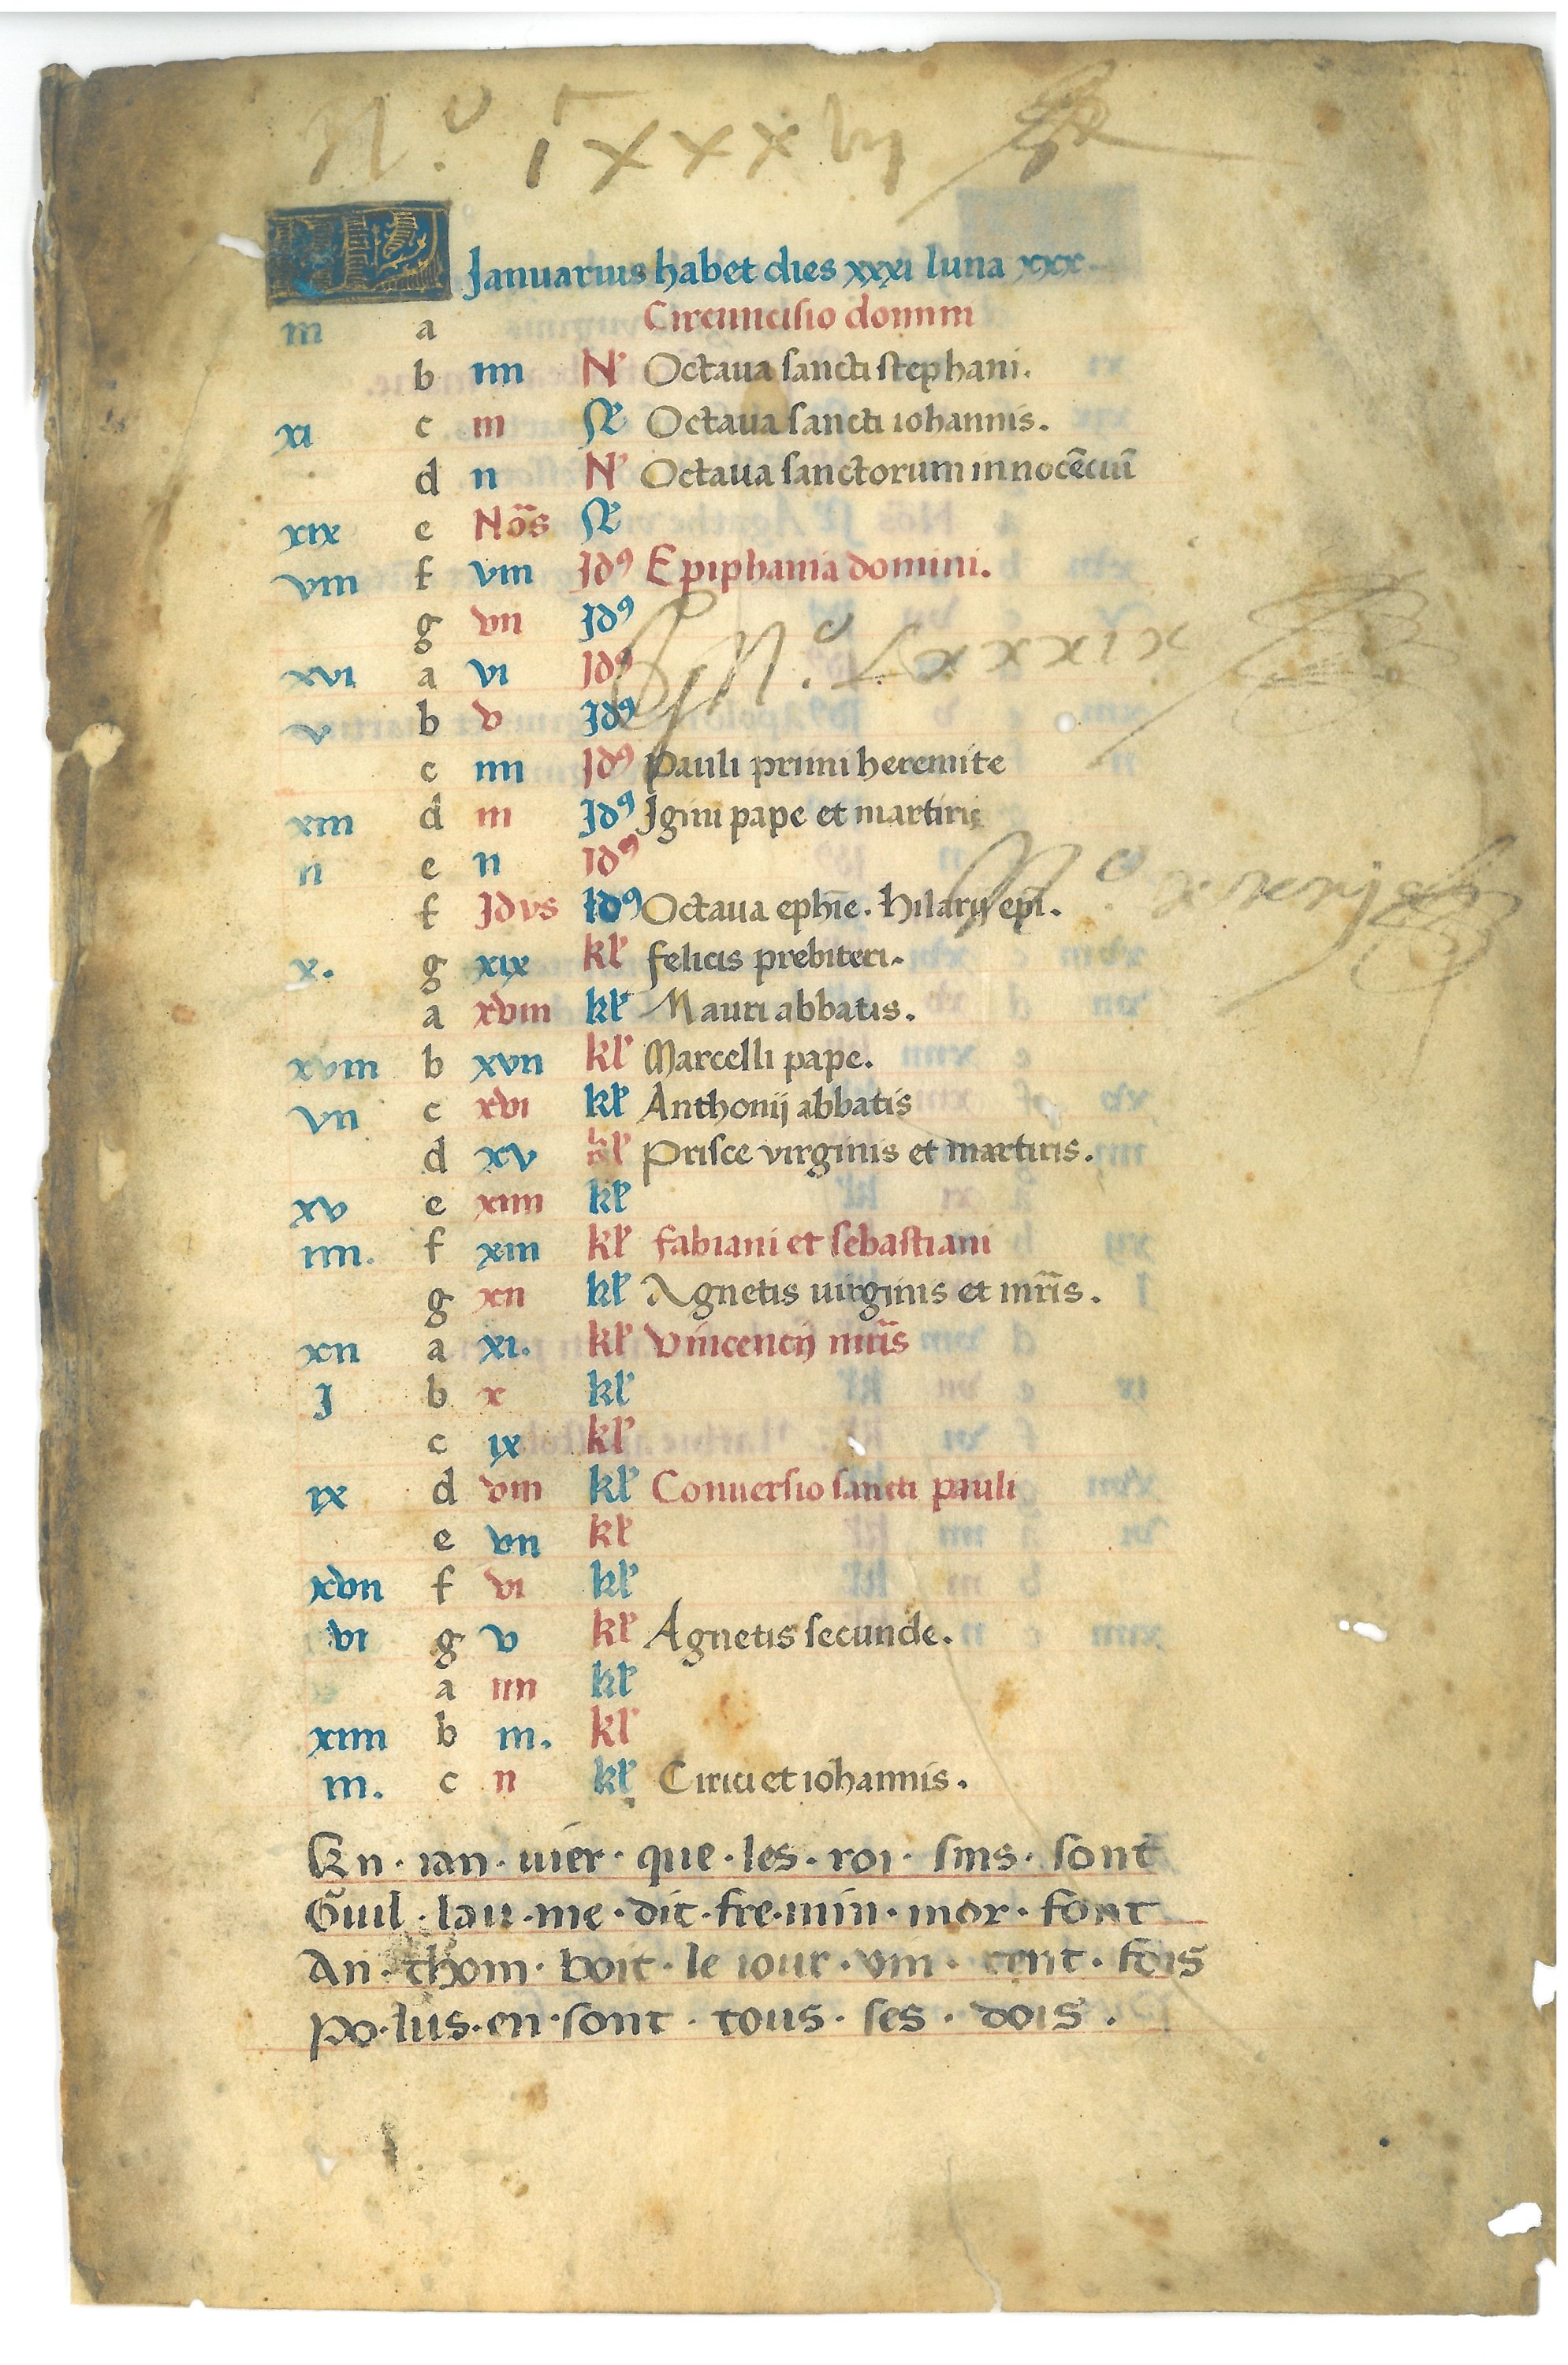 N.º lxxxvij
KL Januarius habet dies xxxi luna xxx.
iii a Circuncisio domini
b iiii N' Octaua sancti stephani.
xi c iii Ne Octaua sancti iohannis.
d ii N' Octaua sanctorum innocẽciũ
xix e Nõs Ne
viii f viii Idꝰ Epiphania domini.
g vii Idꝰ
N.º Lxxxix
xvi a vi Idꝰ
v b v Idꝰ
c iiii Idꝰ Pauli primi heremite
xiii d iii Idꝰ Igini pape et martiris
ii e ii Idꝰ
N.º
f Idvs Idꝰ Octaua ephĩe. hilarij epĩ.
x. g xix kl' felicis prebiteri.
a xviii kl' Mauri abbatis.
xviii b xvii kl' Marcelli pape.
vii c xvi kl' Anthonij abbatis
d xv kl' Prisce virginis et martiris.
xv e xiiii kl'
iiii. f xiii kl' fabiani et sebastiani
g xii kl' Agnetis uirginis et mr̃is.
xii a xi. kl' Vincencij mr̃is
j b x kl'
c ix kl'
ix d viii kl' Conuersio sancti pauli
e vii kl'
xvii f vi kl'
vi g v kl' Agnetis secunde.
a iiii kl'
xiiii b iii. kl'
iii. c ii kl' Cirici et iohannis.
En · ian · uier · que · les · roi · sins · sont
Guil · lau · me · dit · fre · min · mor · font
An · thom · boit · le iour · vin · cent · fois
Po · lus · en · sont · tous · ses · dois .